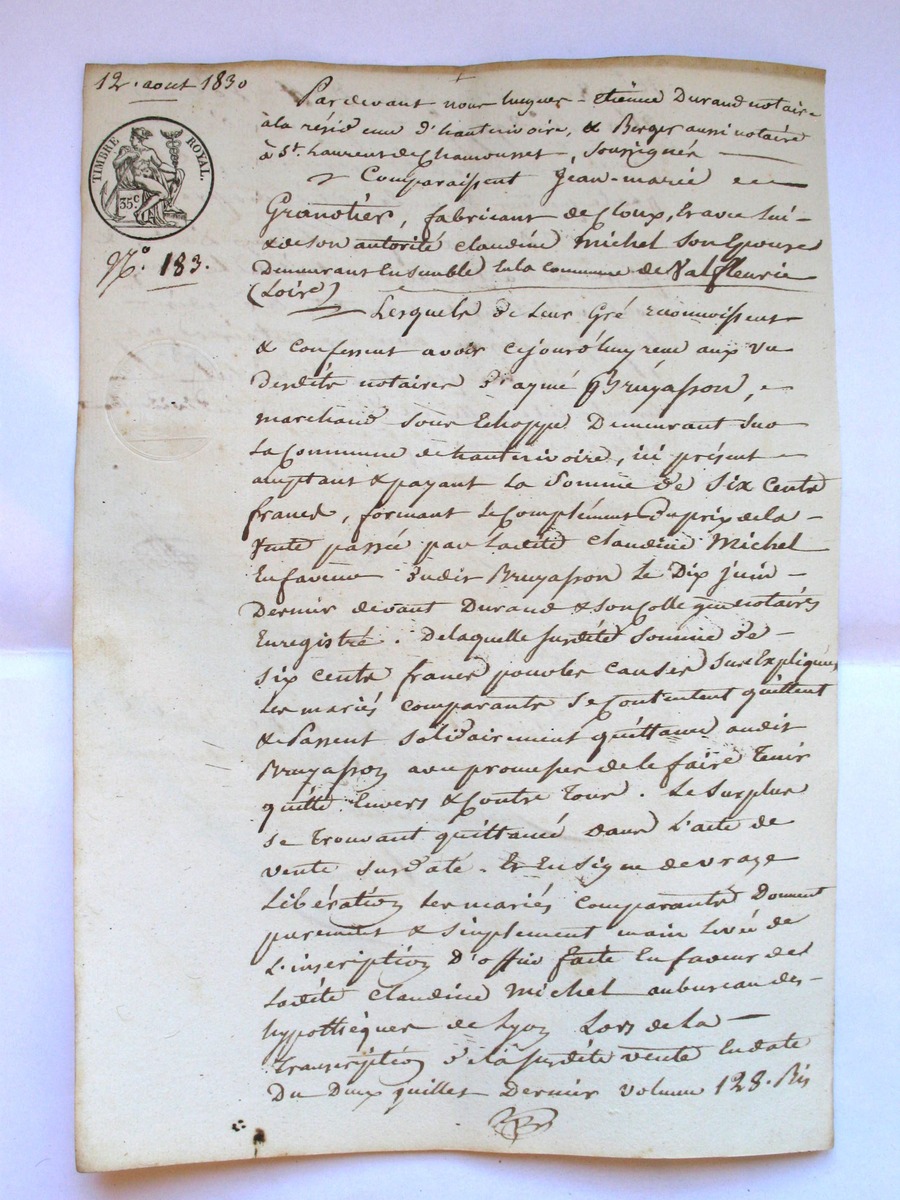 12. aout 1830
TIMBRE ROYAL.
35.c
N.o 183.
Pardevant nous hugues-étienne Durand notaire
à la résidence d'hauterivoire, & Berger aussi notaire
à St. Laurent de Chamousset, soussignés
Comparaissent Jean-marie
Granotier, fabricant de cloux, & avec lui
& de son autorité claudine Michel son Epouse
Demeurant Ensemble En la commune de Valfleurie
(Loire)
Lesquels de leur Gré reconnoissent
& confessent avoir cejourd'huy reçu aux vu
desdits notaires d'aymé Bruyasson,
marchand sous Echoppe Demeurant Sur
La Commune de hauterivoire, ici présent
acceptant & payant La Somme de Six Cents
francs, formant le Complément du prix de la
vente passée par Ladite Claudine Michel
En faveur dudit Bruyasson Le Dix juin
Dernier devant Durand & son Collegue notaires
Enregistré. De laquelle susdite Somme de
six cents francs pour les causes sus Expliquées
Les mariés comparants se Contentent quittent
& Passent solidairement quittance audit
Bruyasson avec promesse de le faire Tenir
quitte Envers & Contre Tous. Le Surplus
se Trouvant quittancé dans L'acte de
vente susdaté. Et En signe de vraye
Libération Les mariés comparants Donnent
purement & simplement main levée de
L'inscription D'office faite En faveur de
Ladite Claudine Michel au bureau des
hypothèques de Lyon Lors de La
Transcription de la susdite vente En date
Du Deux juillet Dernier volume 128. Bis